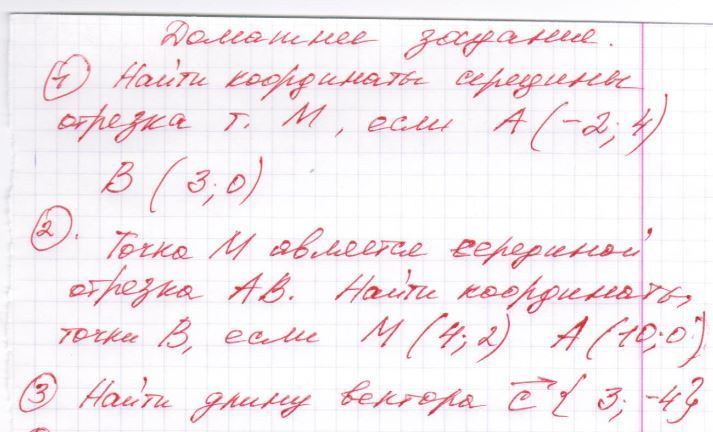 Домашнее задание.
1 Найти координаты середины
отрезка т. М, если А (-2; 4)
В (3; 0)
2. Точка М является серединой
отрезка АВ. Найти координаты
точки В, если М (4; 2) А (10; 0)
3 Найти длину вектора c {3; -4}